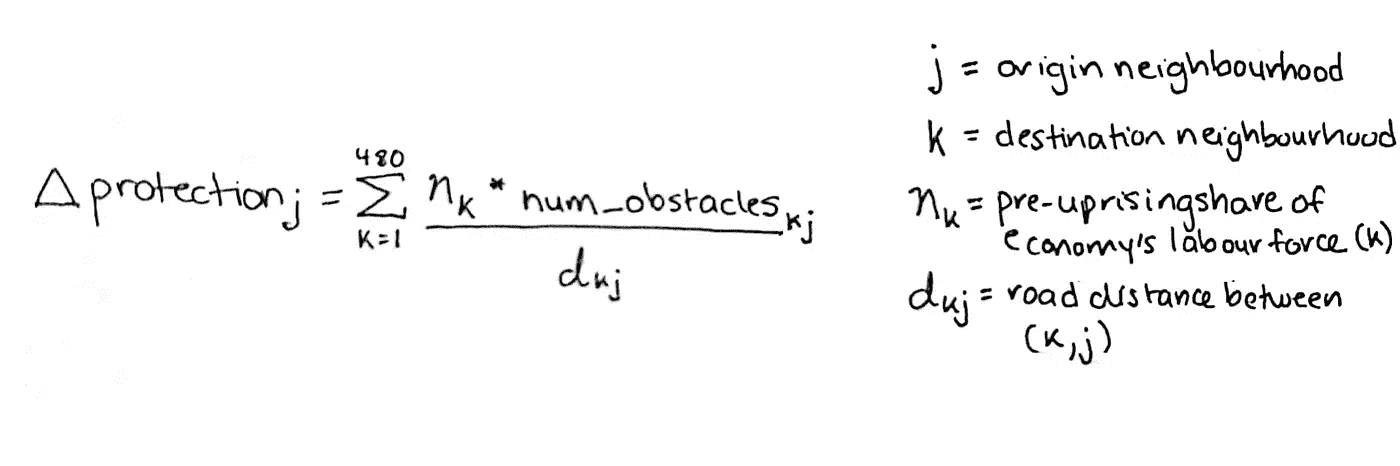 Δ protection_j = Σ_{K=1}^{480} (n_K * num_obstacles_{Kj}) / d_{Kj}
j = origin neighbourhood
K = destination neighbourhood
n_K = pre-uprising share of
economy's labour force (K)
d_{Kj} = road distance between
(K,j)